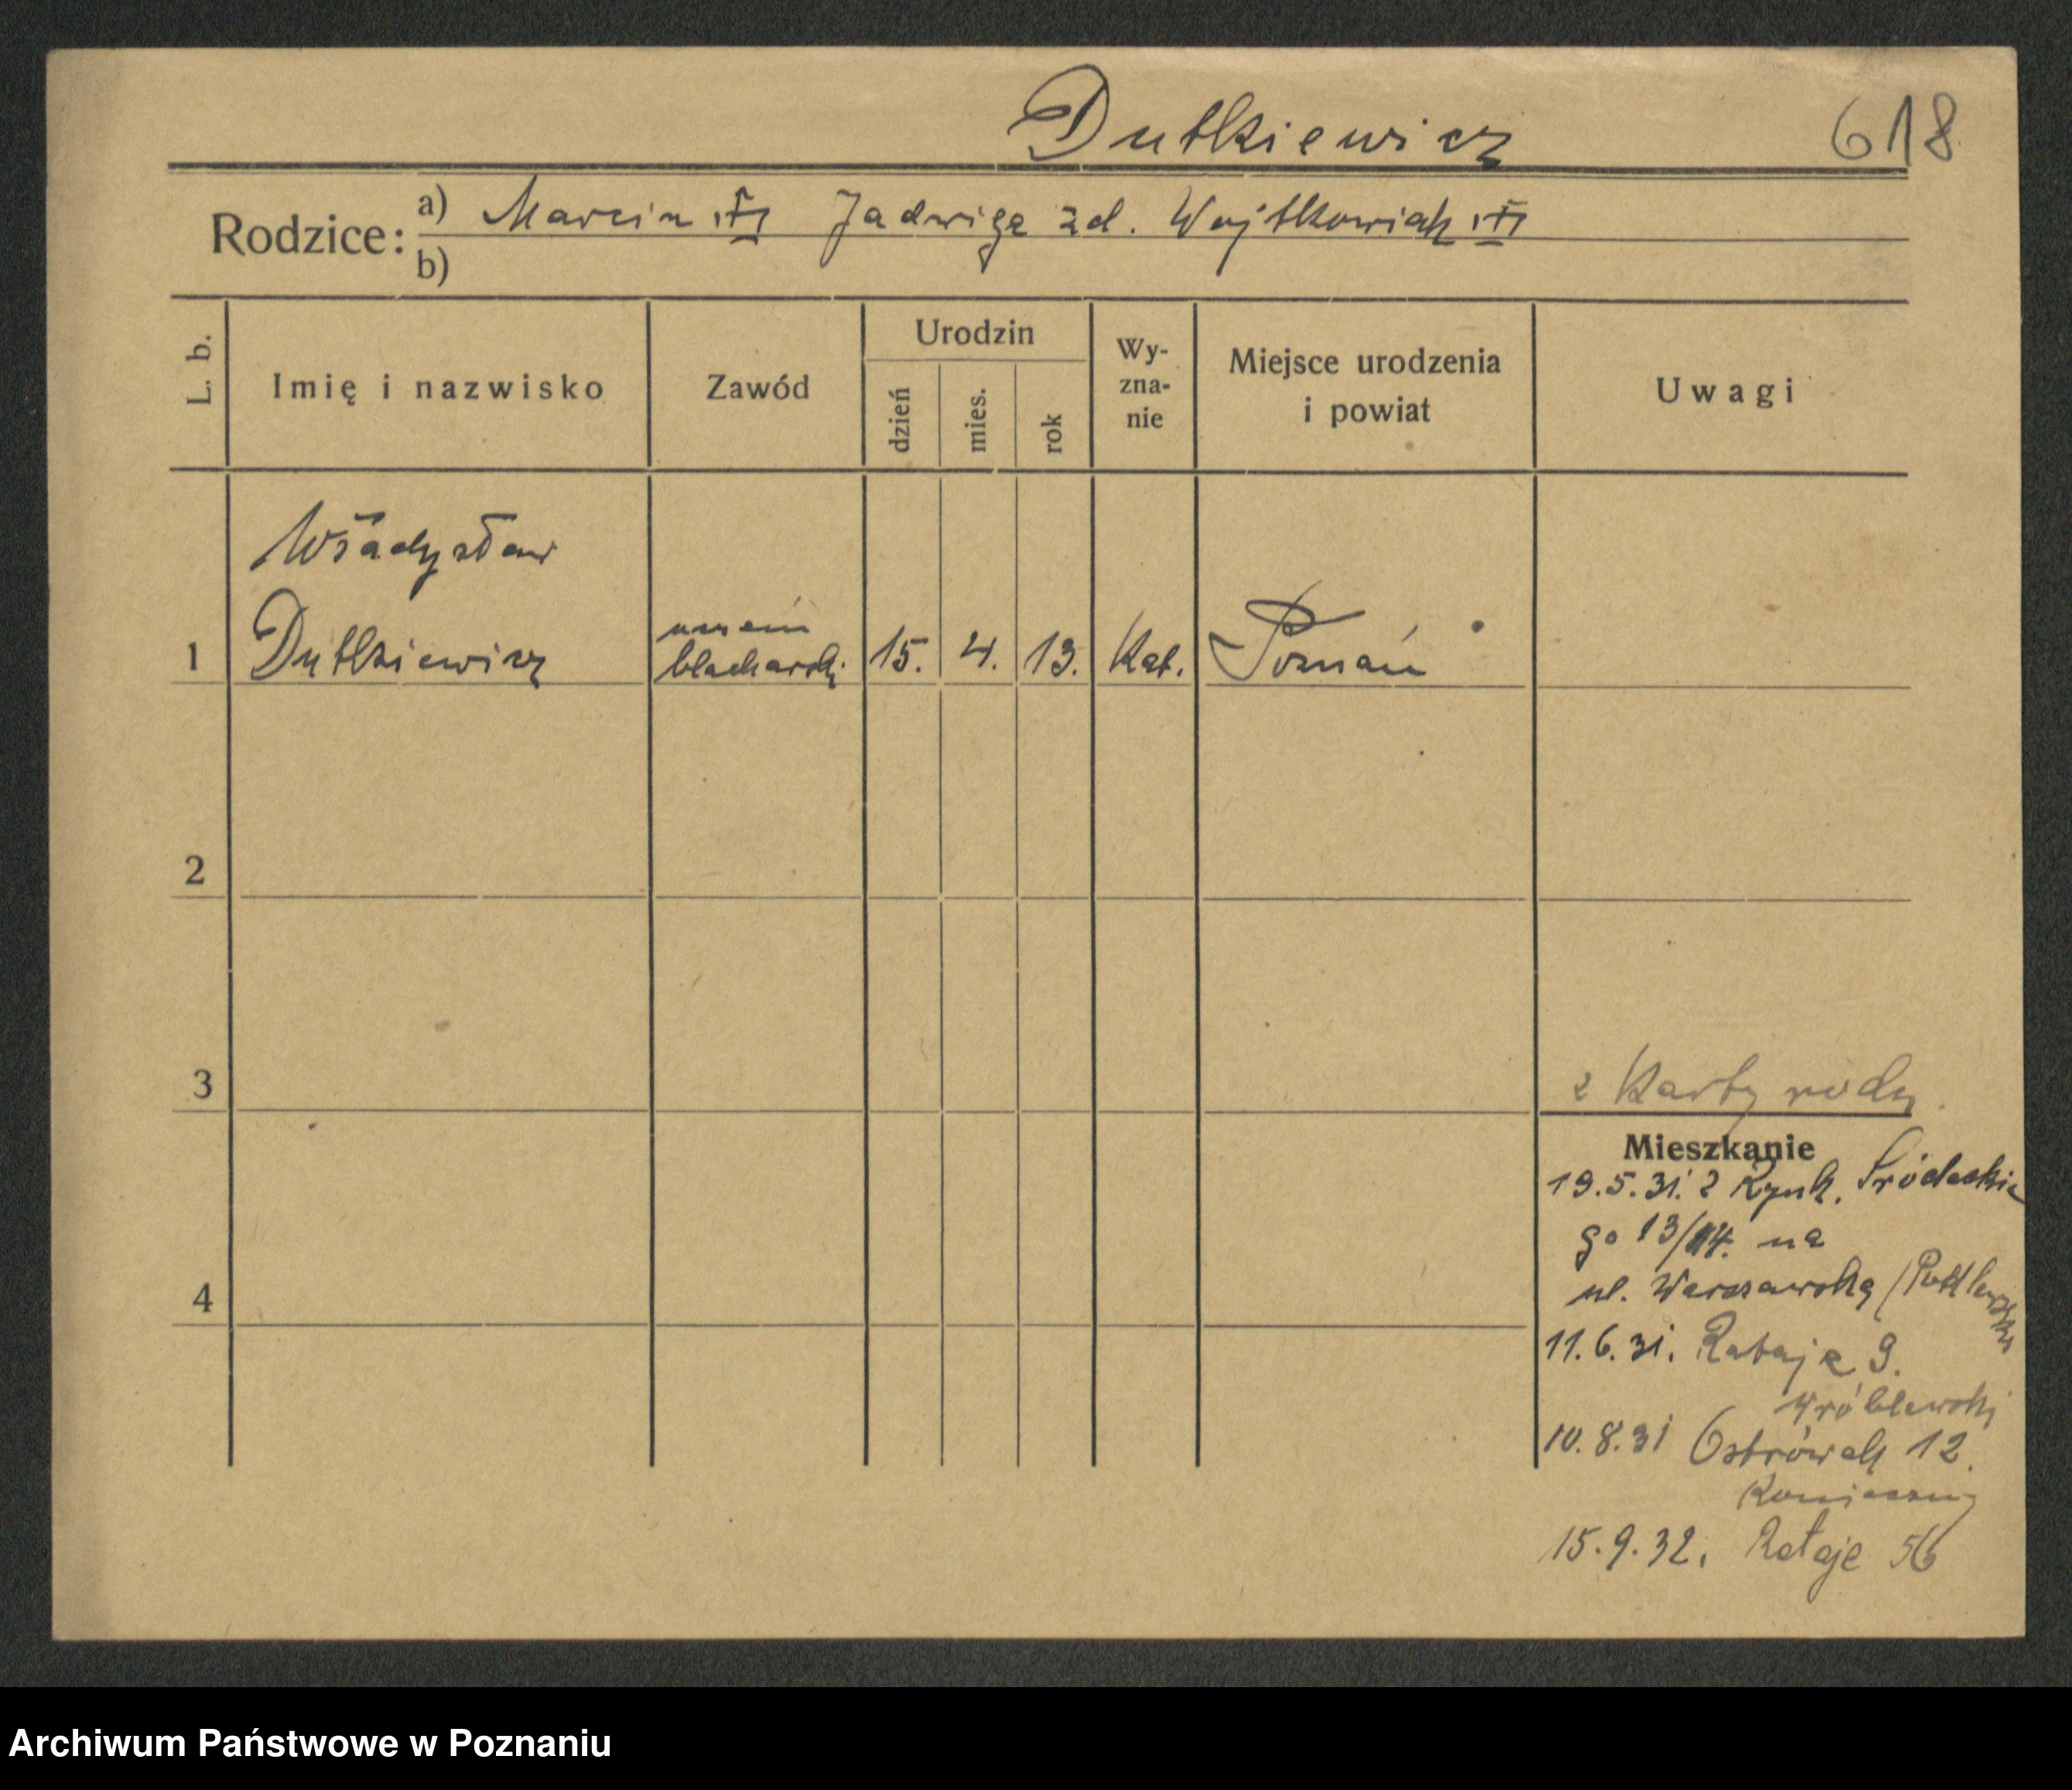 Dutkiewicz 618
Rodzice: a) Marcin Jadwiga zd. Wojtkowiak
b)
L. b. Imię i nazwisko Zawód Urodzin dzień mies. rok Wy-zna-nie Miejsce urodzenia i powiat Uwagi
Władysław
uczeń
1 Dutkiewicz blacharski 15. 4. 13. Kat. Poznań
2
3 z Karty rodz.
Mieszkanie
19.5.31. z Rynk. Śródeckie
go 13/14. na
4 ul. Warszawską
11.6.31. Rataje 9.
Wróblewski
10.8.31 Ostrówek 12.
Konieczny
15.9.32. Rataje 56
Archiwum Państwowe w Poznaniu